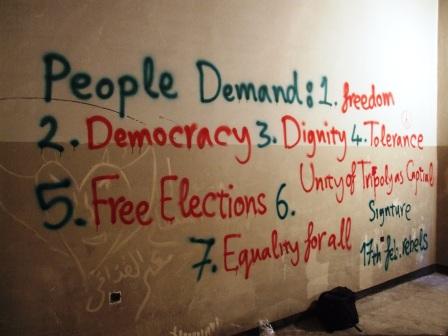 People Demand: 1. freedom
2. Democracy 3. Dignity 4. Tolerance
5. Free Elections 6. Unity of Tripoly as Captial
7. Equality for all
Signture
17th feb. rebels